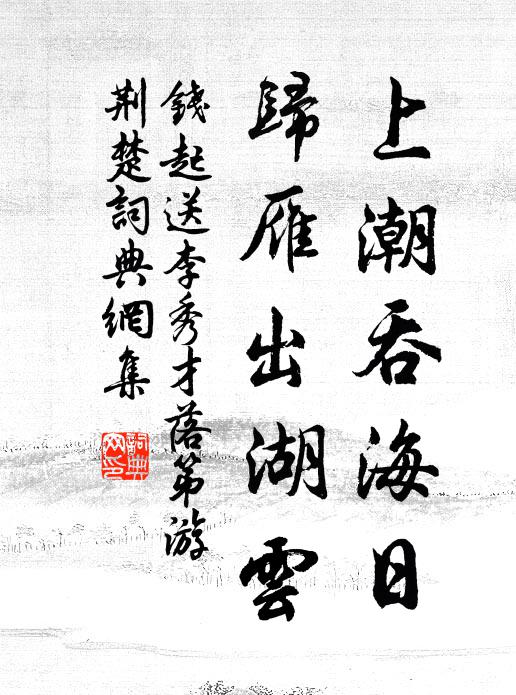 上潮吞海日
歸雁出湖雲
錢起送李秀才落第游
荆楚詞典網集
詞典网印